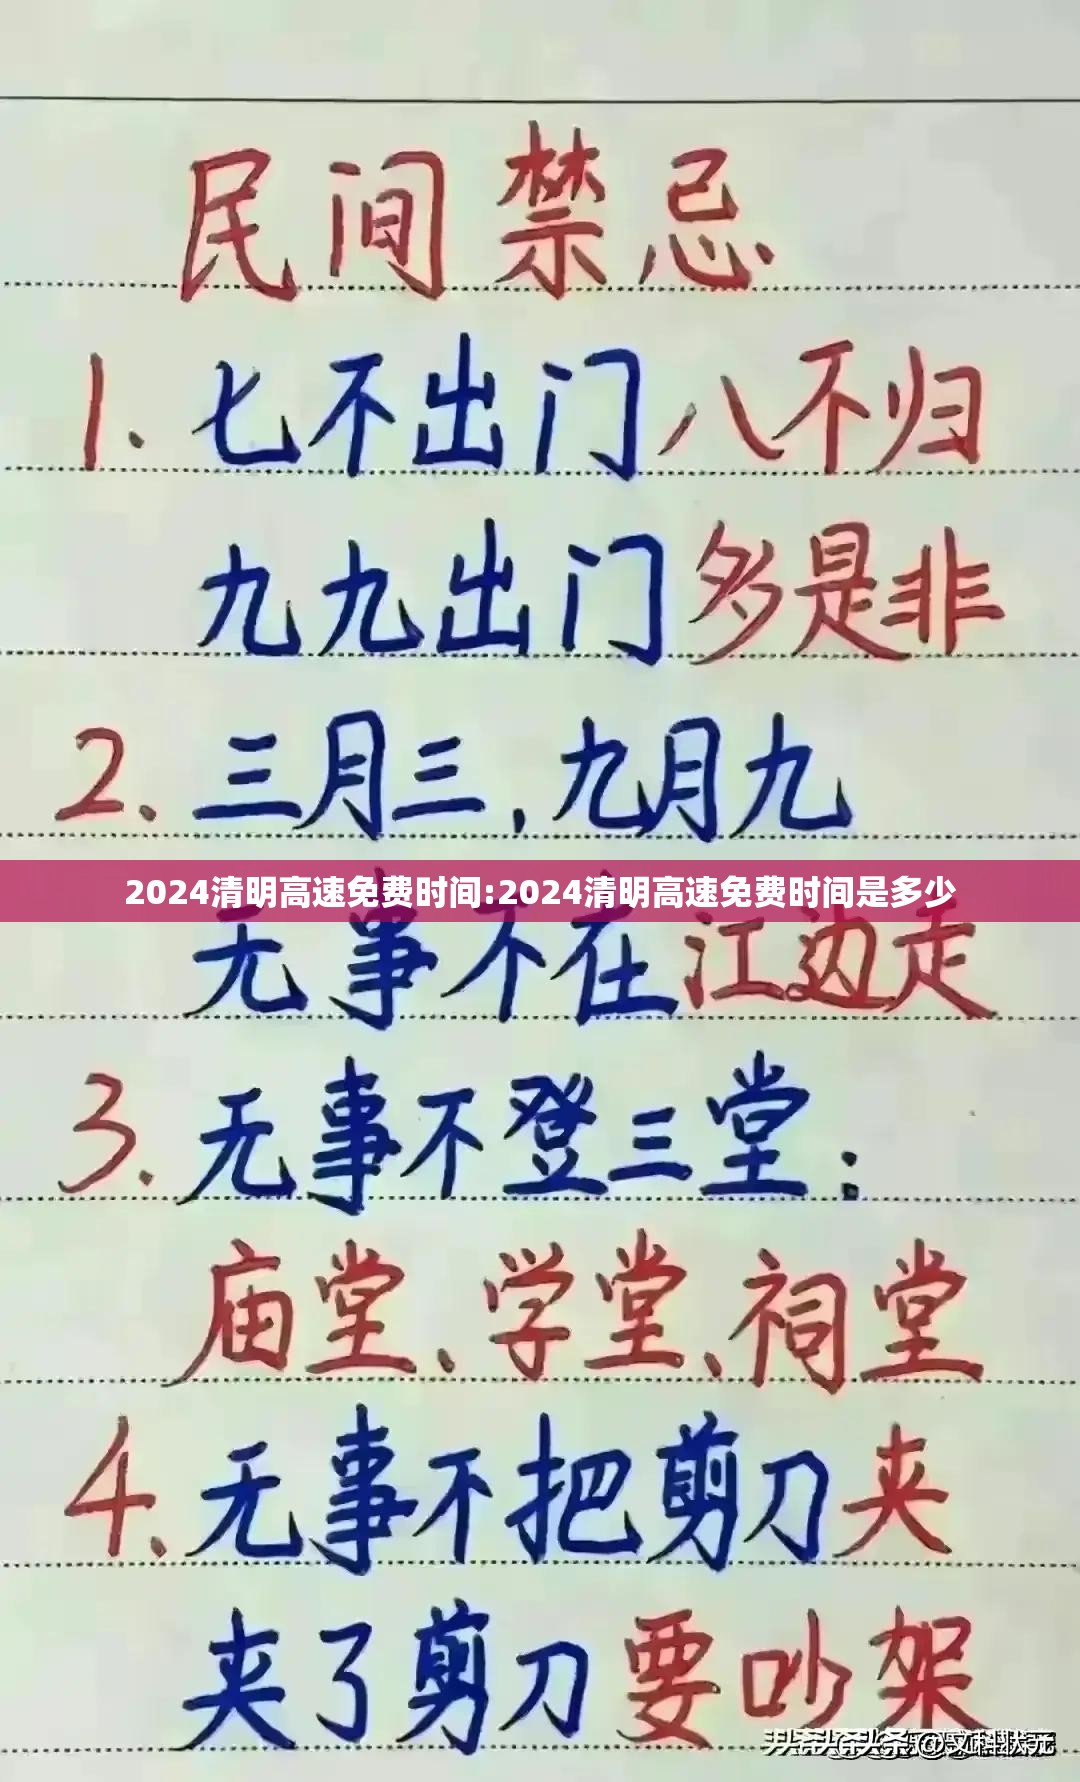 民间禁忌
1.七不出门八不归
九九出门多是非
2.三月三,九月九
2024清明高速免费时间:2024清明高速免费时间是多少
无事不在江边走
3.无事不登三堂:
庙堂、学堂、祠堂
4.无事不把剪刀夹
夹了剪刀要吵架
头条 @文科状元